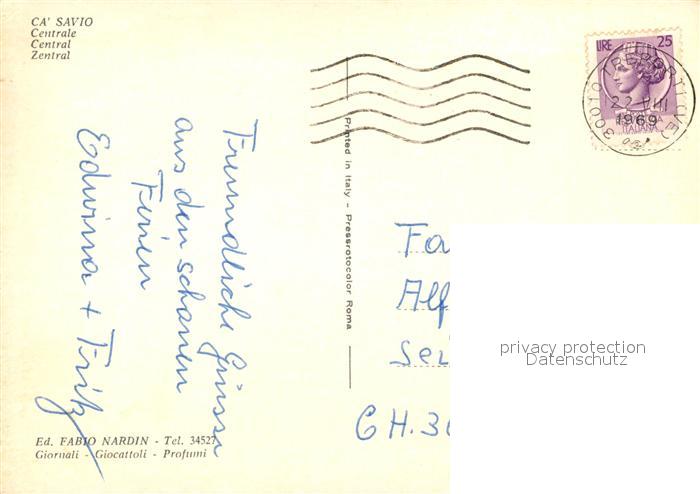 CA' SAVIO
Centrale
Central
Zentral
LIRE 25
22 VIII
1969
ITALIANA
Freundliche Grüsse
aus den schönen
Ferien
Edwina + Fritz
Printed in Italy - Pressrotocolor Roma
Fa
Alf
Sei
CH. 30
privacy protection
Datenschutz
Ed. FABIO NARDIN - Tel. 34527
Giornali - Giocattoli - Profumi